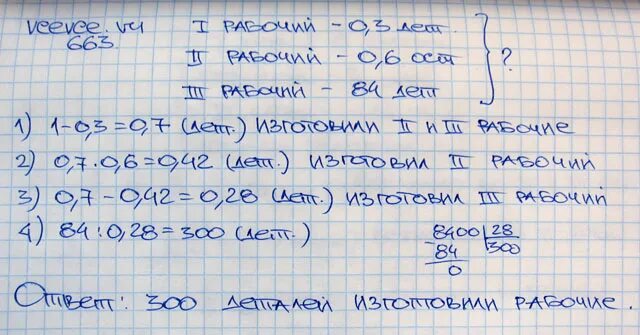 veevee.ru
663.
I РАБОЧИЙ - 0,3 дет.
II РАБОЧИЙ - 0,6 ост
III РАБОЧИЙ - 84 дет
?
1) 1-0,3=0,7 (дет.) ИЗГОТОВИЛИ II И III РАБОЧИЕ
2) 0,7·0,6=0,42 (дет.) ИЗГОТОВИЛ II РАБОЧИЙ
3) 0,7-0,42=0,28 (дет.) ИЗГОТОВИЛ III РАБОЧИЙ
4) 84:0,28=300 (дет.)
8400 | 28
-84 300
0
Ответ: 300 ДЕТАЛЕЙ ИЗГОТОВИЛИ РАБОЧИЕ.